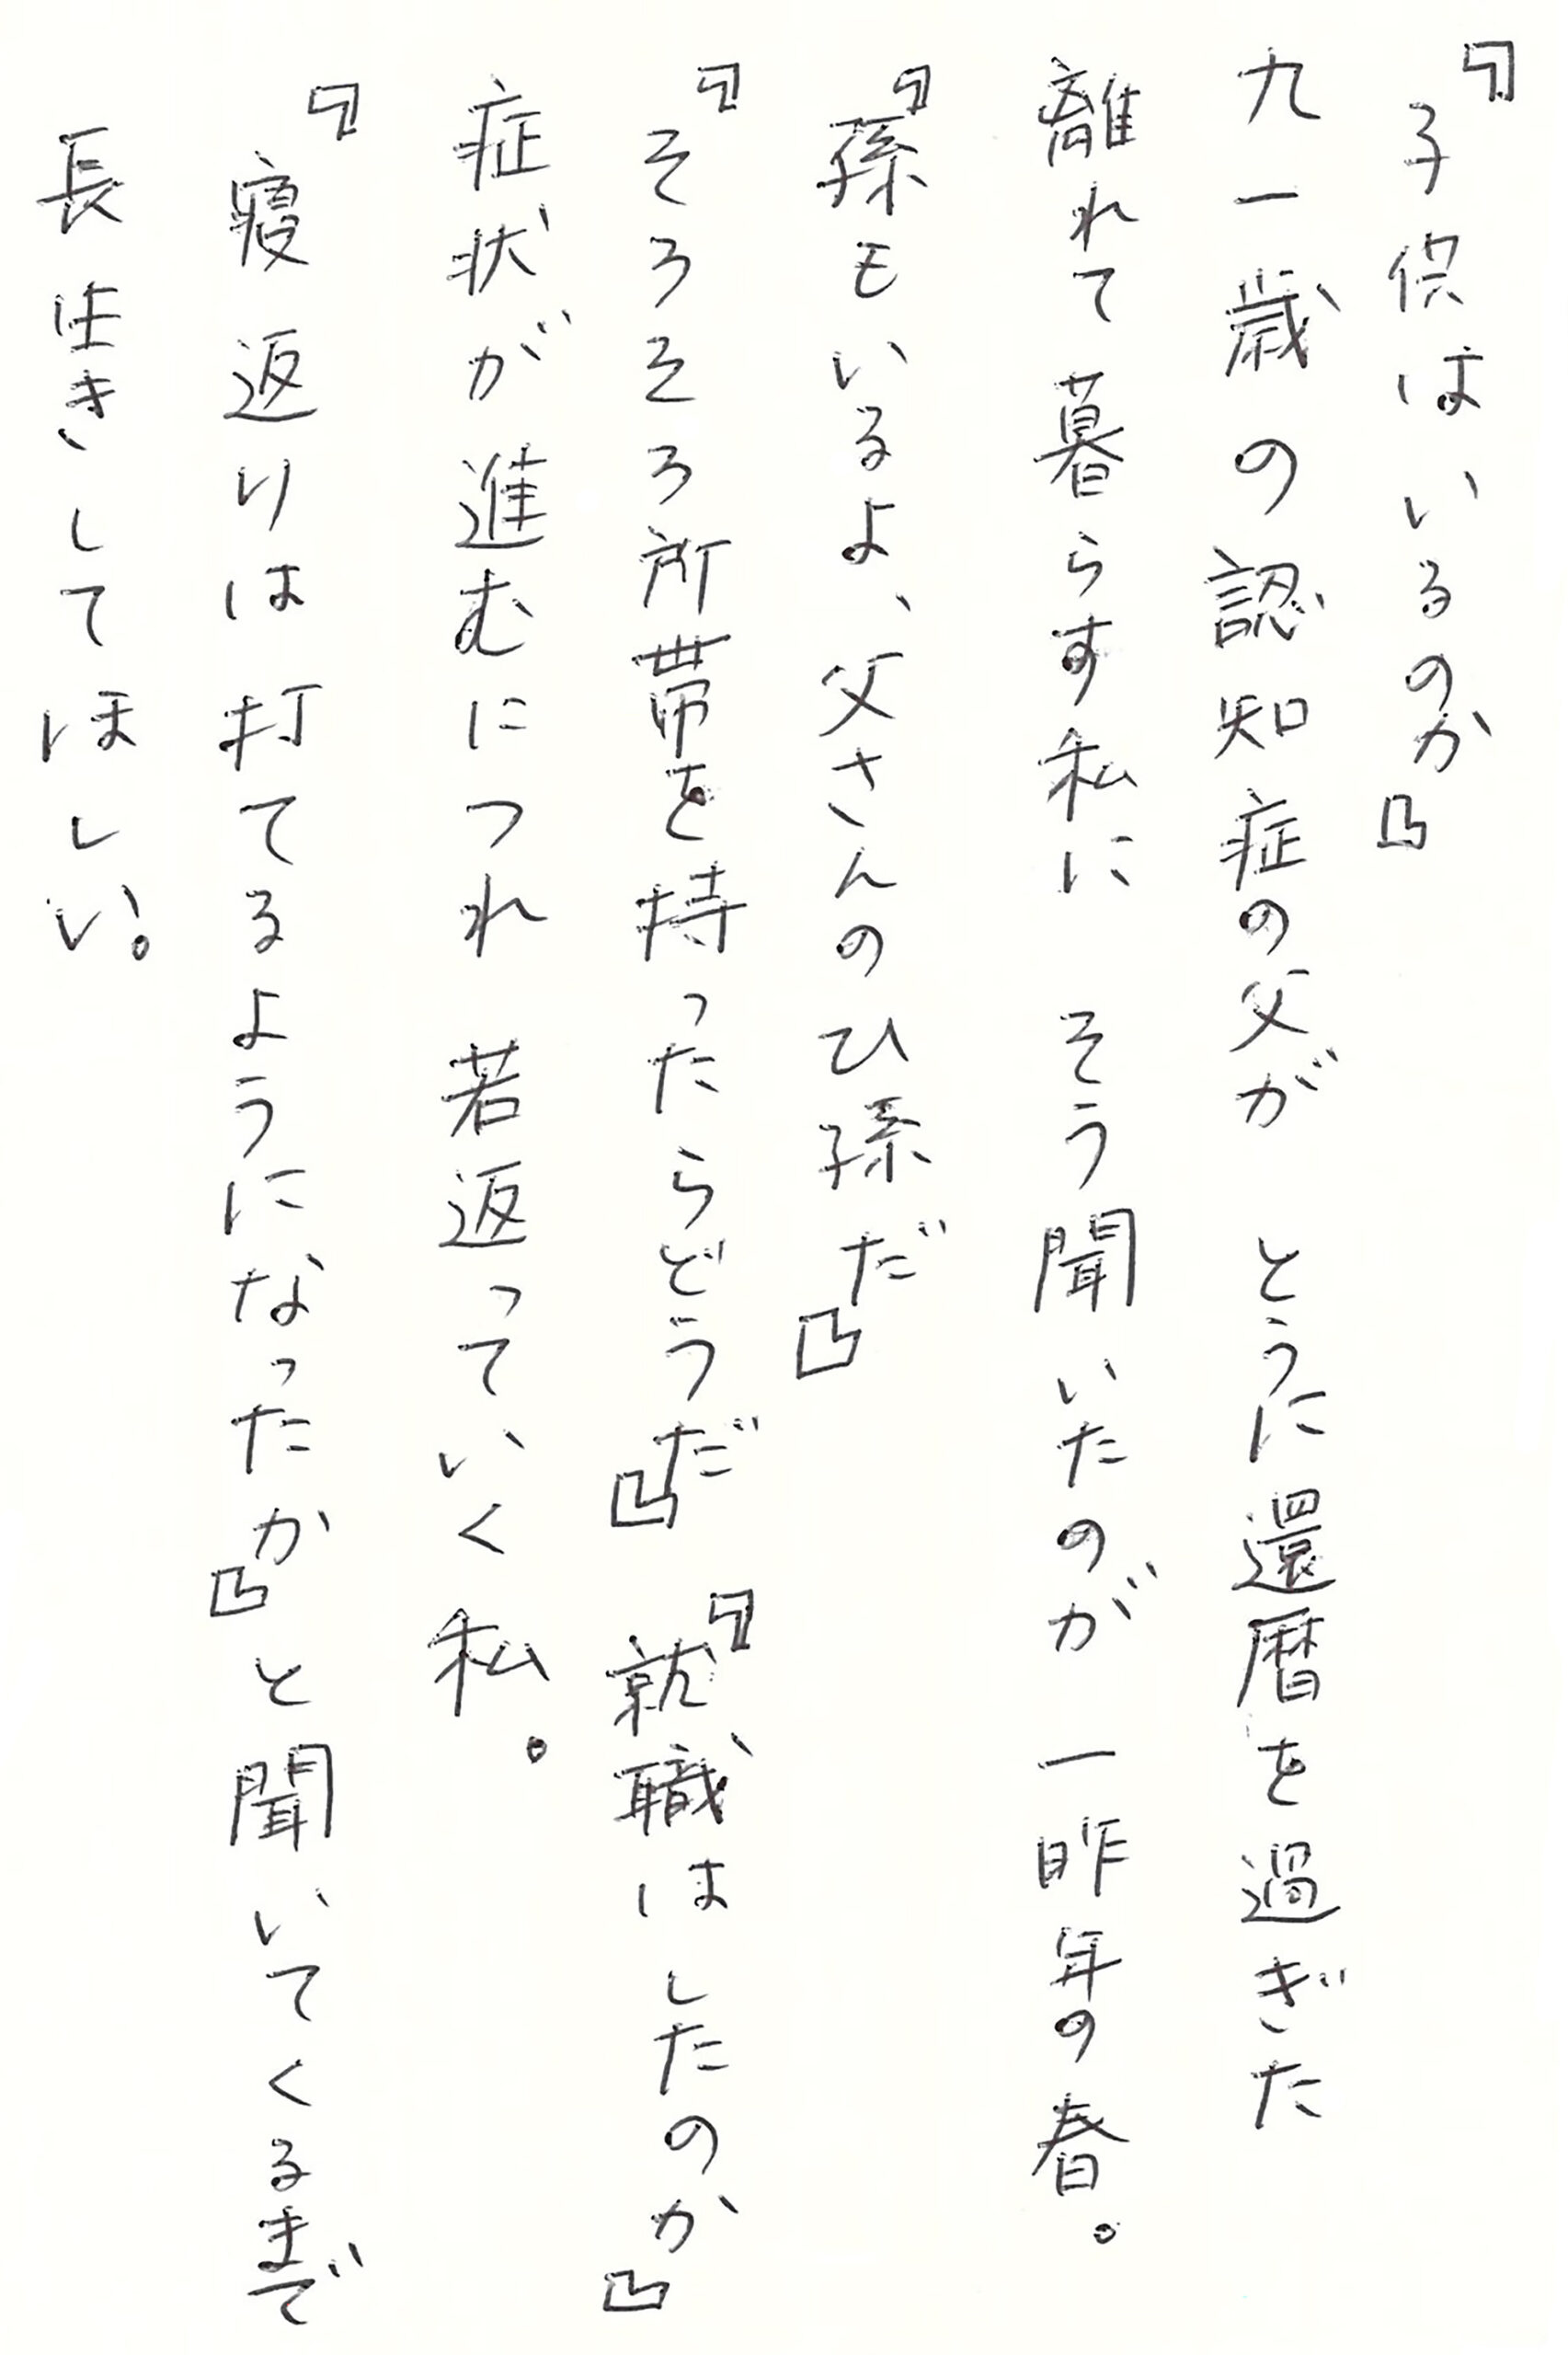 『子供はいるのか』
九一歳の認知症の父が　とうに還暦を過ぎた
離れて暮らす私に　そう聞いたのが　一昨年の春。
『孫もいるよ、父さんのひ孫だ』
『そろそろ所帯を持ったらどうだ』『就職はしたのか』
症状が進むにつれ　若返っていく私。
『寝返りは打てるようになったか』と聞いてくるまで
長生きしてほしい。